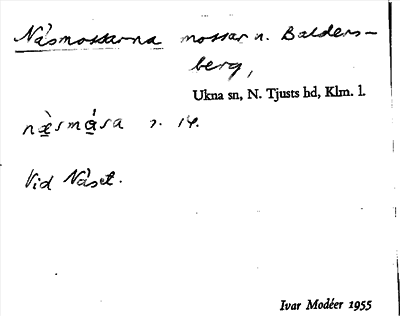 Näsmossarna mossar n. Balders-
berg,
Ukna sn, N. Tjusts hd, Klm. l.
næ̀smɑ́sa s. 14.
Vid Näset.
Ivar Modéer 1955